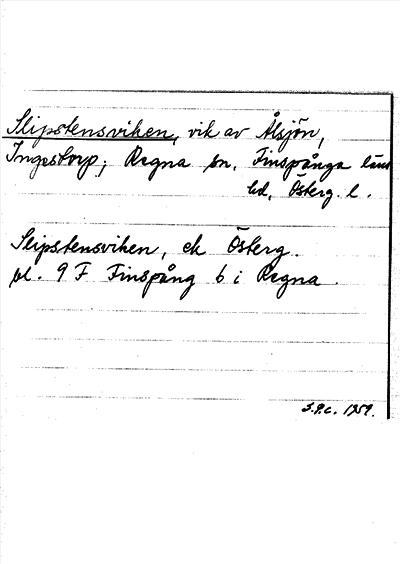 Slipstensviken, vik av Ålsjön,
Ingestorp; Regna sn. Finspånga läns
hd, Österg. l.
Slipstensviken, ek Österg.
bl. 9 F Finspång b i Regna.
1959.